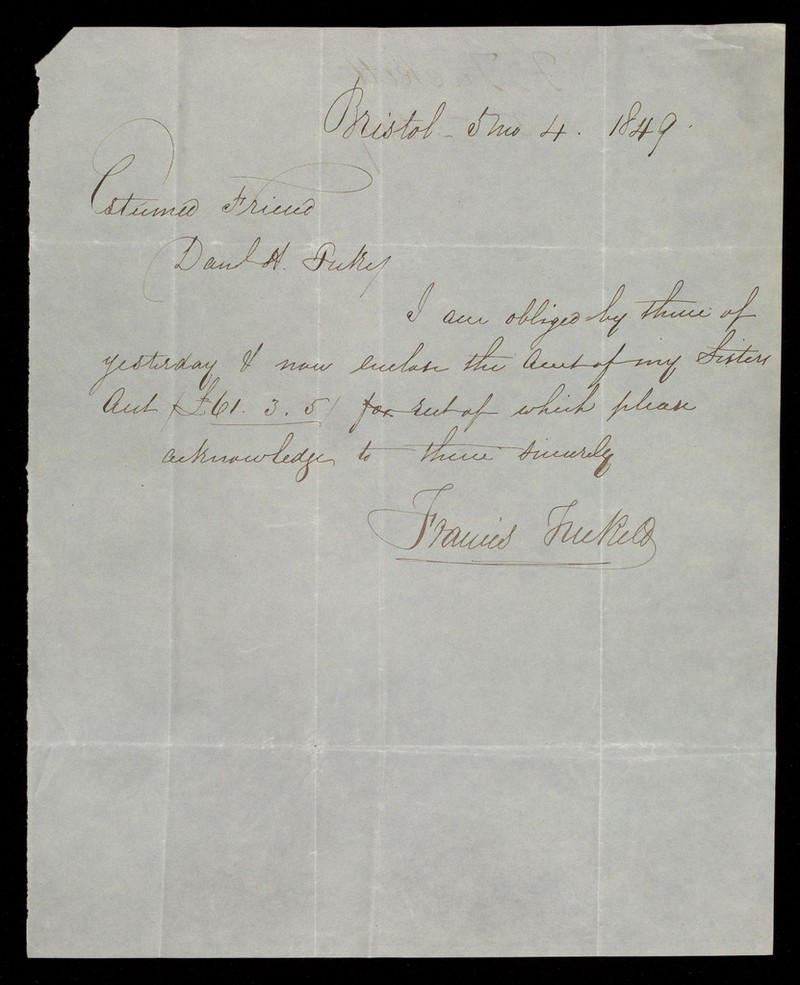 Bristol - 5 mo 4. 1849.
Esteemed Friend
Danl H.
I am obliged by thine of
yesterday & now enclose the Amt of my Sisters
Acct (£61. 3. 5) for rect of which please
acknowledge to thine sincerely
Francis Tuckett